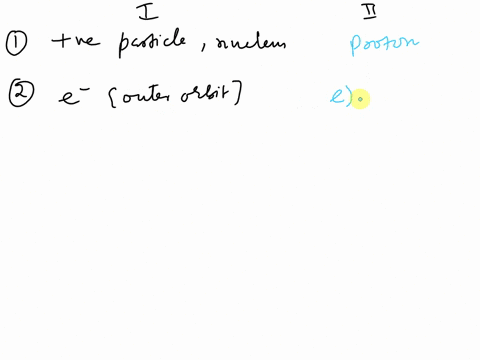 I II
① +ve particle, nucleus proton
② e⁻ {outer orbit} e)